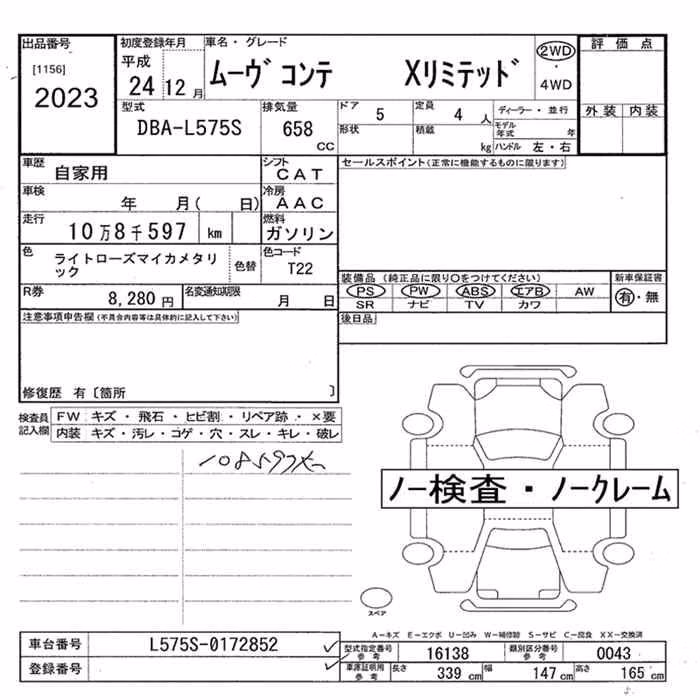 出品番号 初度登録年月 車名・グレード 評価点
[1156] 平成 ムーヴ コンテ Xリミテッド 2WD
2023 24 12月 4WD
型式 排気量 ドア 定員 ディーラー・並行 外装 内装
DBA-L575S 658 CC 5 4 人 モデル年式 年
形状 積載 kg ハンドル 左・右
車歴 自家用 シフト CAT セールスポイント(正常に機能するものに限ります)
車検 年 月( 日) 冷房 AAC
走行 10万8千597 km 燃料 ガソリン
色 ライトローズマイカメタリック 色替 色コード T22
装備品(純正品に限り○をつけてください) 新車保証書
R券 8,280円 名変通知期限 月 日 PS PW ABS エアB AW 有・無
SR ナビ TV カワ
注意事項申告欄(不具合内容等は具体的に記入して下さい) 後日品
修復歴 有〔箇所 〕
検査員記入欄 FW キズ・飛石・ヒビ割・リペア跡・×要
内装 キズ・汚レ・コゲ・穴・スレ・キレ・破レ
ノー検査・ノークレーム
スペア
A-キズ E-エクボ U-凹み W-補修跡 S-サビ C-腐食 XX-交換済
車台番号 L575S-0172852 型式指定番号 参考 16138 類別区分番号 参考 0043
登録番号 車庫証明用 参考 長さ 339 cm 幅 147 cm 高さ 165 cm